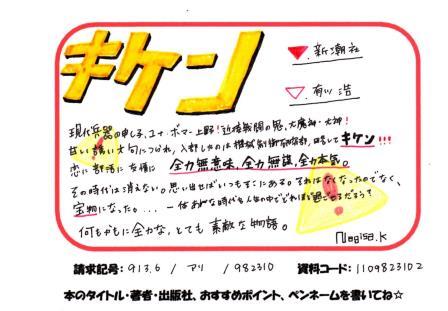 キケン
▼.新潮社
▽.有川 浩
現代兵器の申し子、ユナ・ボマー上野!近接戦闘の鬼、大魔神・大神!
甘い誘い文句につられ、入部したのは機械制御研究部、略してキケン!!!
恋に部活に友情に 全力無意味、全力無謀、全力本気。
その時代は消えない。思い出せばいつもそこにある。それはなくなったのでなく、
宝物になった。... 一体あんな時代を人生の中でどれほど過ごせるだろう?
何もかもに全力な、とても素敵な物語。
Nagisa.k
請求記号: 913.6 / アリ / 982310 資料コード: 1109823102
本のタイトル・著者・出版社、おすすめポイント、ペンネームを書いてね☆